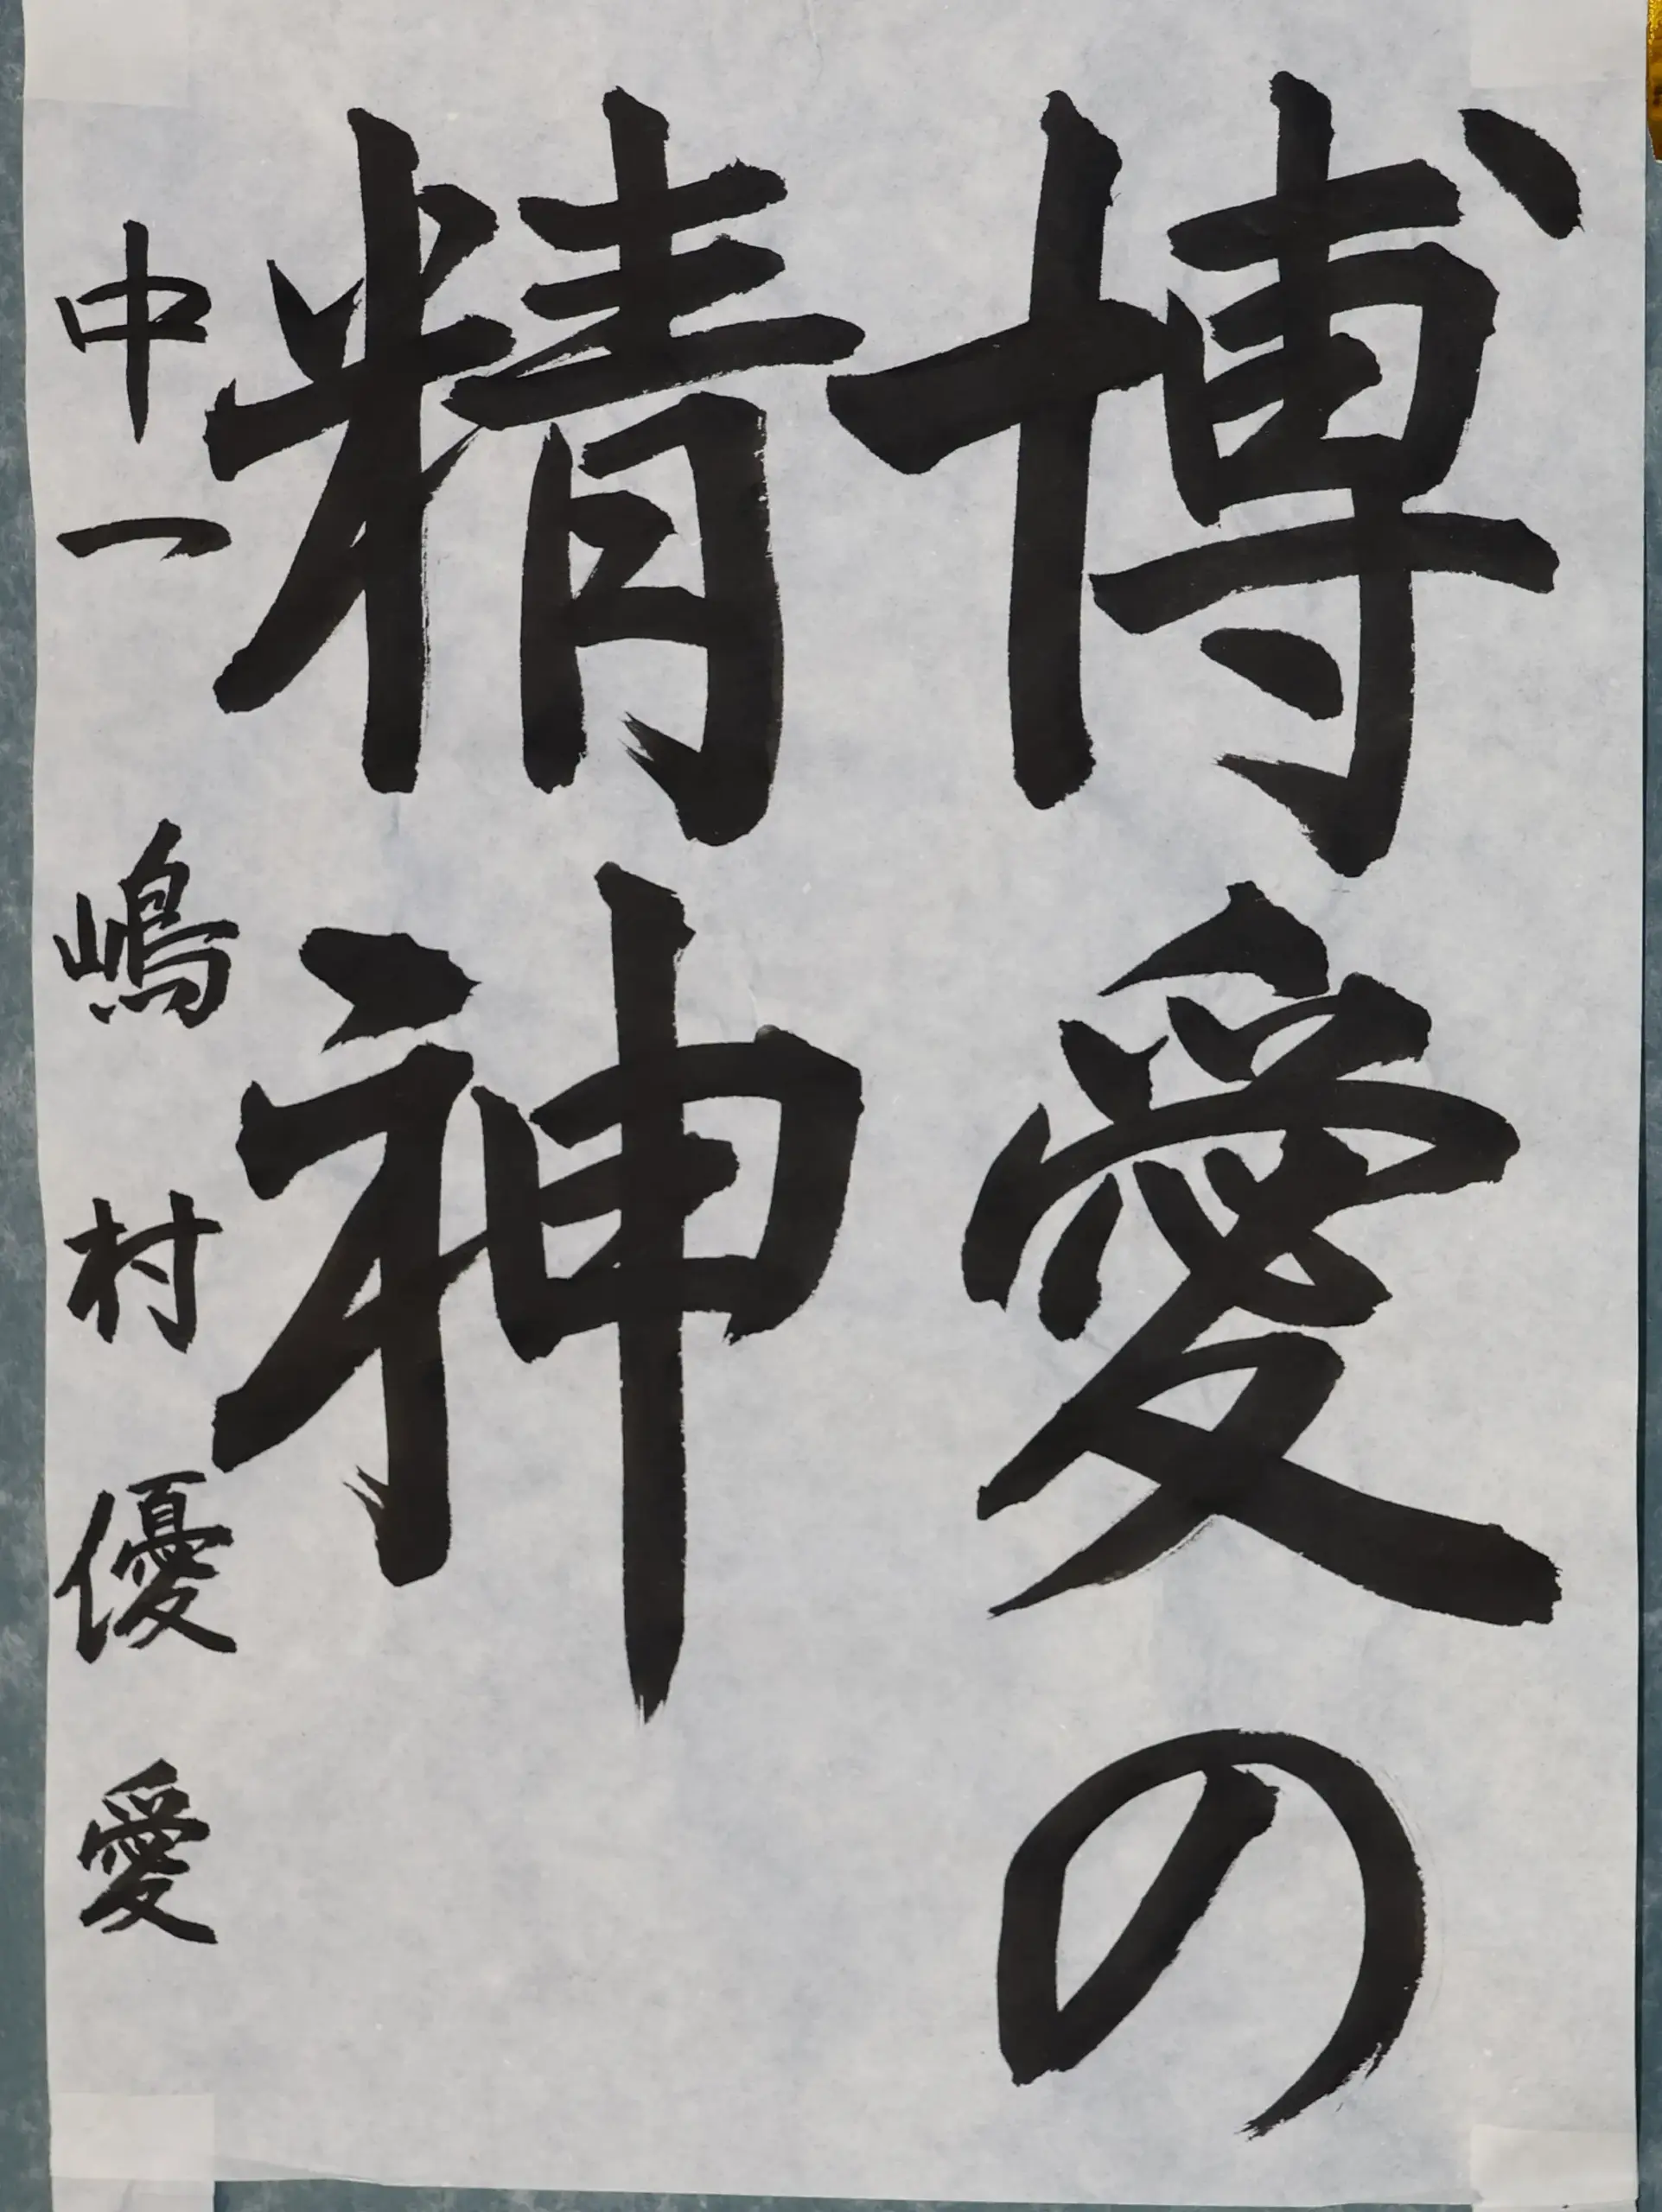 博愛の
精神
中一 嶋村優愛